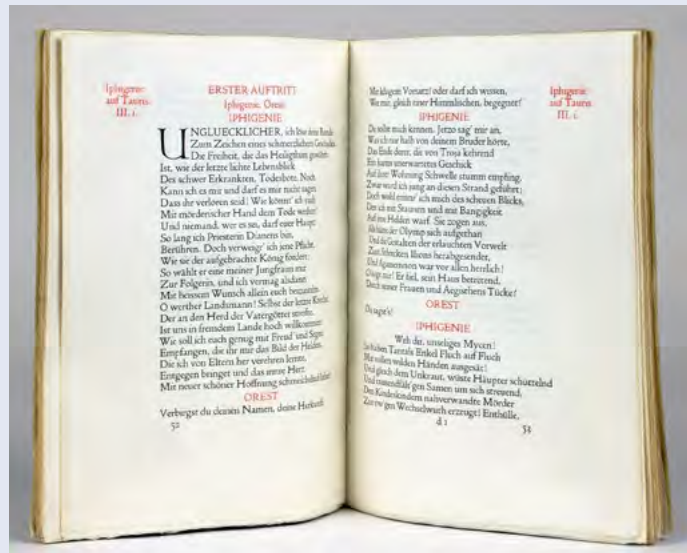 Iphigenie
auf Tauris
III. 1.
ERSTER AUFTRITT
Iphigenie. Orest
IPHIGENIE
UNGLUECKLICHER, ich löse deine Bande
Zum Zeichen eines schmerzlichern Geschicks.
Die Freiheit, die das Heiligthum gewährt,
Ist, wie der letzte lichte Lebensblick
Des schwer Erkrankten, Todesbote. Noch
Kann ich es mir und darf es mir nicht sagen,
Dass ihr verloren seid! Wie könnt' ich euch
Mit mörderischer Hand dem Tode weihen?
Und niemand, wer es sei, darf euer Haupt,
So lang ich Priesterin Dianens bin,
Berühren. Doch verweigr' ich jene Pflicht,
Wie sie der aufgebrachte König fordert;
So wählt er eine meiner Jungfraun mir
Zur Folgerin, und ich vermag alsdann
Mit heissem Wunsch allein euch beizustehn.
O werther Landsmann! Selbst der letzte Knecht,
Der an den Herd der Vatergötter streifte,
Ist uns in fremdem Lande hoch willkommen:
Wie soll ich euch genug mit Freud' und Segen
Empfangen, die ihr mir das Bild der Helden,
Die ich von Eltern her verehren lernte,
Entgegen bringet und das innre Herz
Mit neuer schöner Hoffnung schmeichelnd labet!
OREST
Verbirgst du deinen Namen, deine Herkunft
52
Mit klugem Vorsatz? oder darf ich wissen,
Wer mir, gleich einer Himmlischen, begegnet?
Iphigenie
auf Tauris
III. 1.
IPHIGENIE
Du sollst mich kennen. Jetzo sag' mir an,
Was ich nur halb von deinem Bruder hörte,
Das Ende derer, die von Troja kehrend
Ein hartes unerwartetes Geschick
Auf ihrer Wohnung Schwelle stumm empfing.
Zwar ward ich jung an diesen Strand geführt;
Doch wohl erinnr' ich mich des scheuen Blicks,
Den ich mit Staunen und mit Bangigkeit
Auf jene Helden warf. Sie zogen aus,
Als hätte der Olymp sich aufgethan
Und die Gestalten der erlauchten Vorwelt
Zum Schrecken Ilions herabgesendet,
Und Agamemnon war vor allen herrlich!
O sage mir! Er fiel, sein Haus betretend,
Durch seiner Frauen und Aegisthens Tücke?
OREST
Du sagst's!
IPHIGENIE
Weh dir, unseliges Mycen!
So haben Tantals Enkel Fluch auf Fluch
Mit vollen wilden Händen ausgesät!
Und gleich dem Unkraut, wüste Häupter schüttelnd
Und tausendfält'gen Samen um sich streuend,
Den Kindeskindern nahverwandte Mörder
Zur ew'gen Wechselwuth erzeugt! Enthülle,
d 1
53